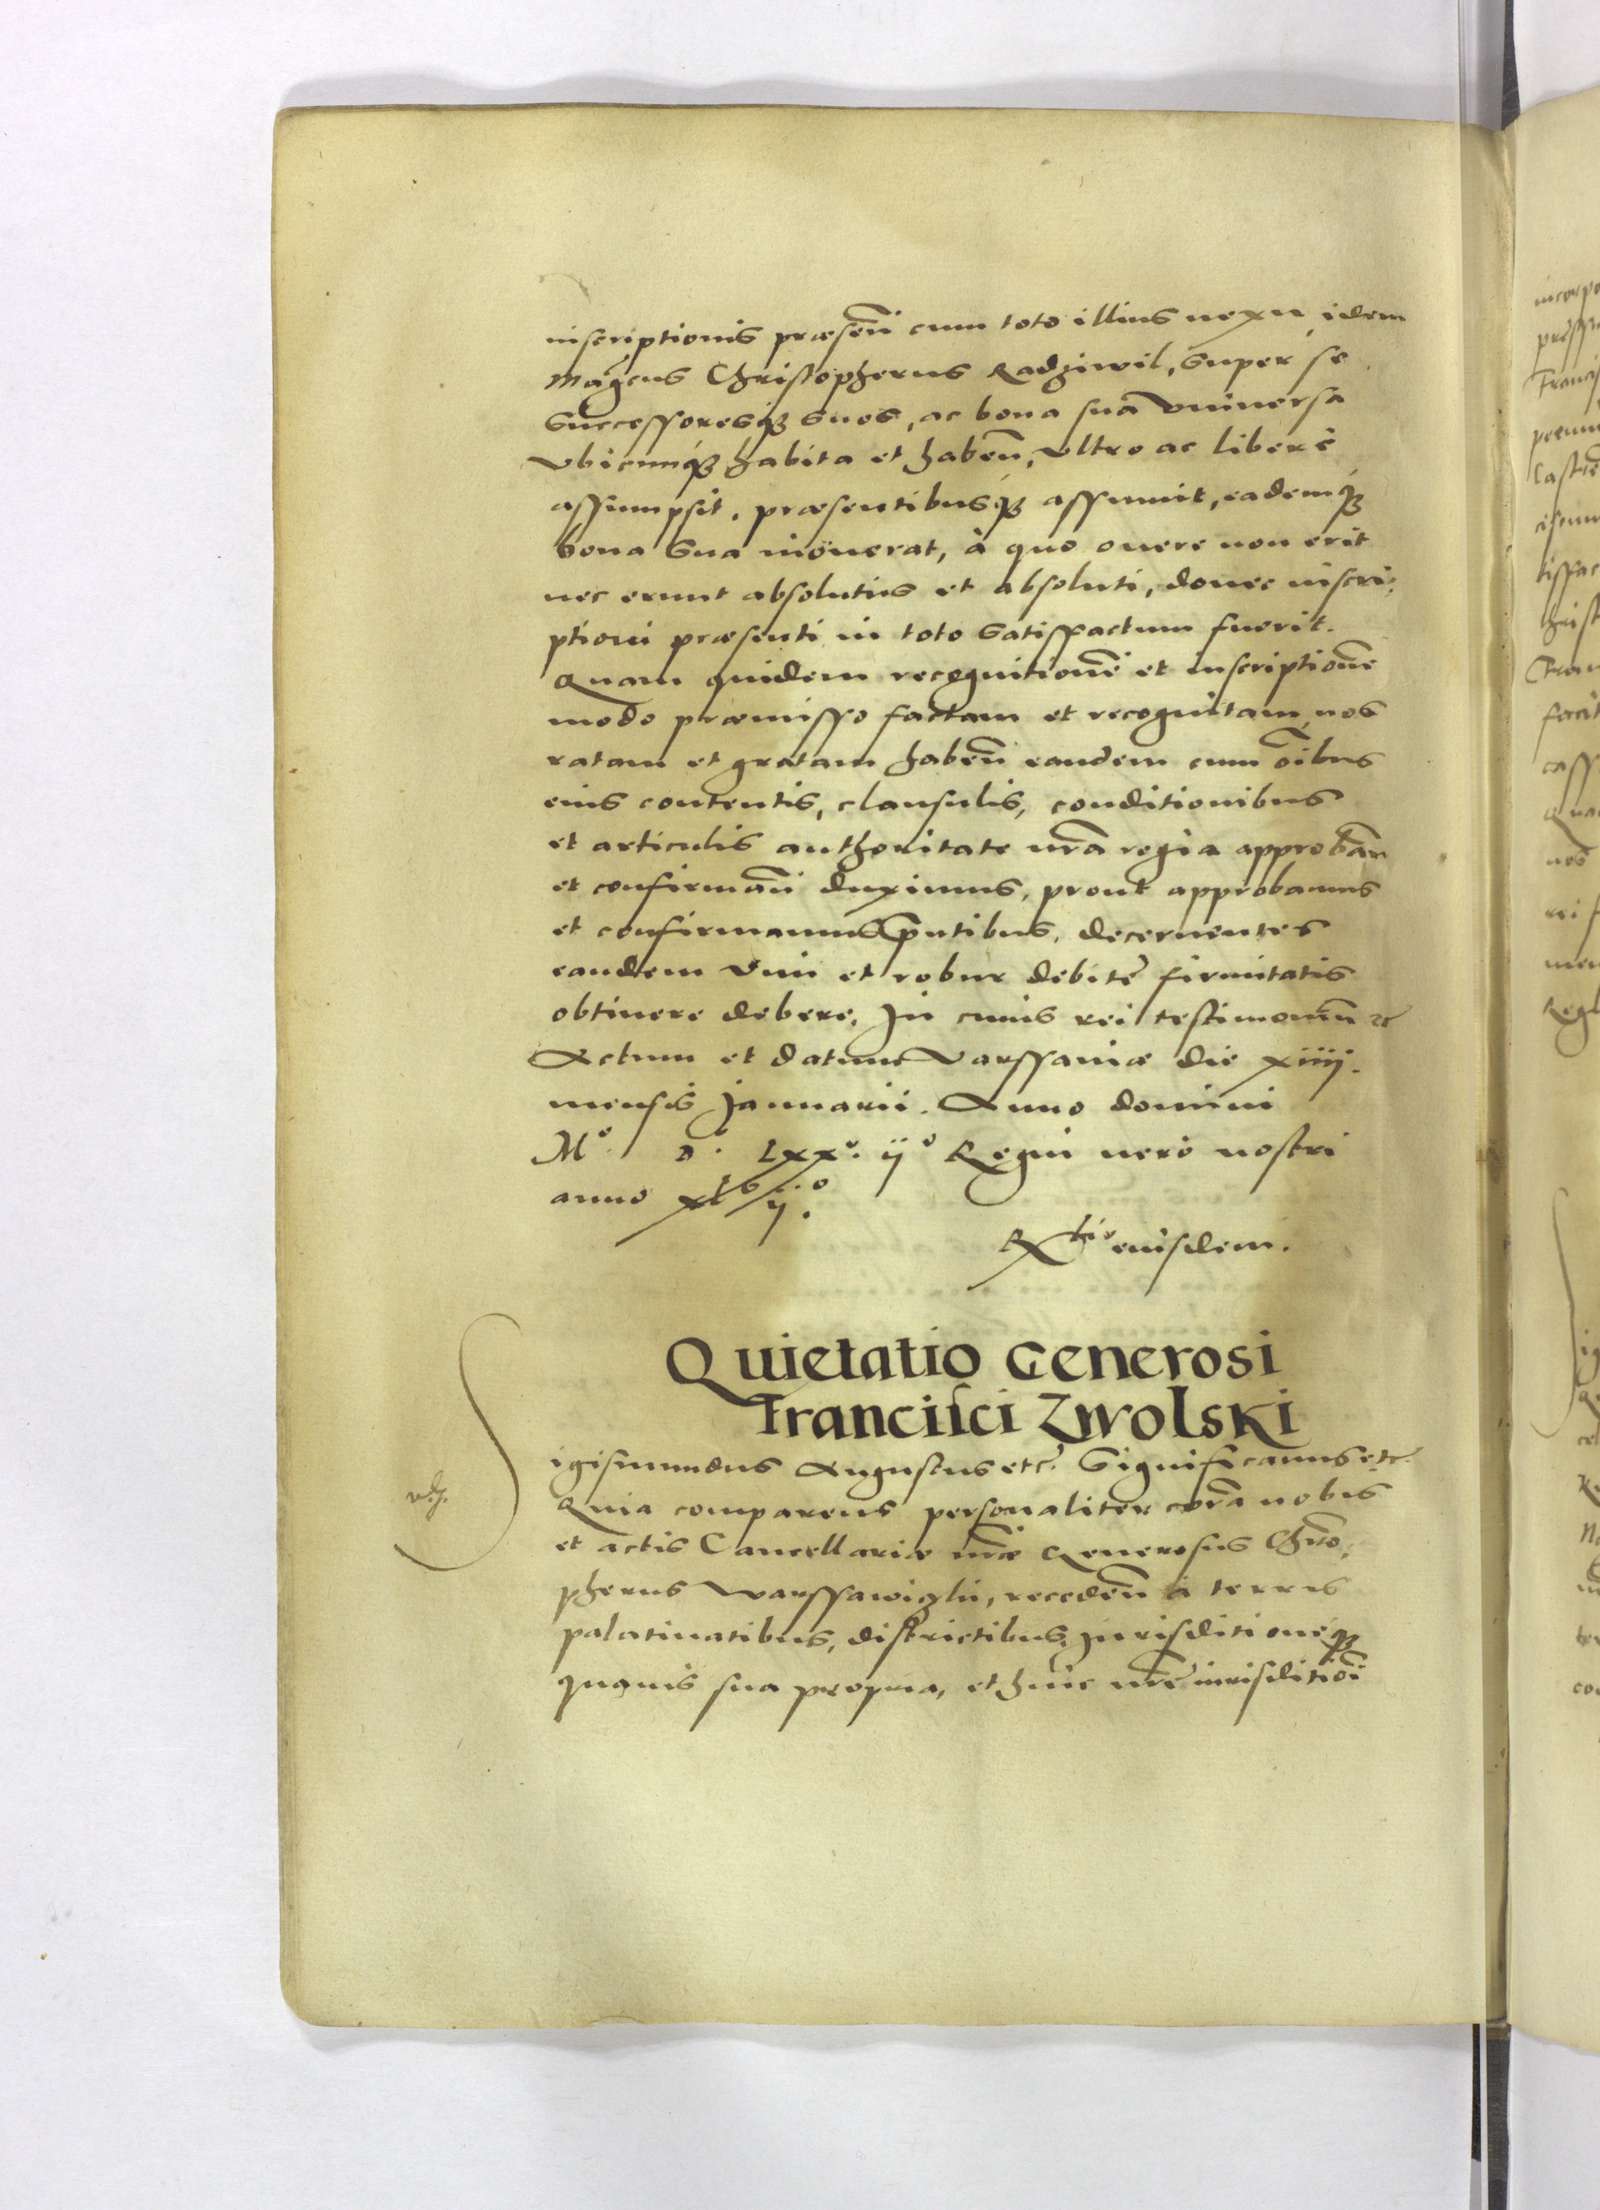 inscriptionis præsen̄ cum toto illius nexu idem
Mag̃cus Christopherus Radziwil, super se
Successoresq₃ suos, ac bona sua vniuersa
vbicunq₃ habita et haben̄, vltro ac liberè
assumpsit, præsentibusq₃ assumit, eademq₃
bona sua inonerat, à quo onere non erit
nec erunt absolutus et absoluti, donec inscri:
ptioni præsenti in toto satisfactum fuerit.
Quam quidem recognitionē et inscriptionē
modo præmisso factam et recognitam nos
ratam et gratam haben̄ eandem cum oībus
eius contentis, clausulis, conditionibus
et articulis authoritate nr̃a regia approban̄
et confirman̄ duximus, prout approbamus
et confirmamus p̃ntibus, decernentes
eandem vim et robur debitę firmitatis
obtinere debere. In cuius rei testimoniū etc
Actum et datum Varssauiæ die xiiij.
mensis Januarii. Anno domini
M° D. Lxx° ij° Regni uero nostri
anno xl° ij°.
Rtio eiusdem.
Quietatio Generosi
Francisci Zwolski
Sigismundus Augustus etc. Significamus etc.
Quia comparens personaliter corā nobis
et actis Cancellariæ nr̃æ Generosus Chr̃o:
pherus Warssawiczki, receden̄ à terris
palatinatibus, districtibus, Jurisditioneq₃
quauis sua propria, et huic nr̃ę iurisditioni